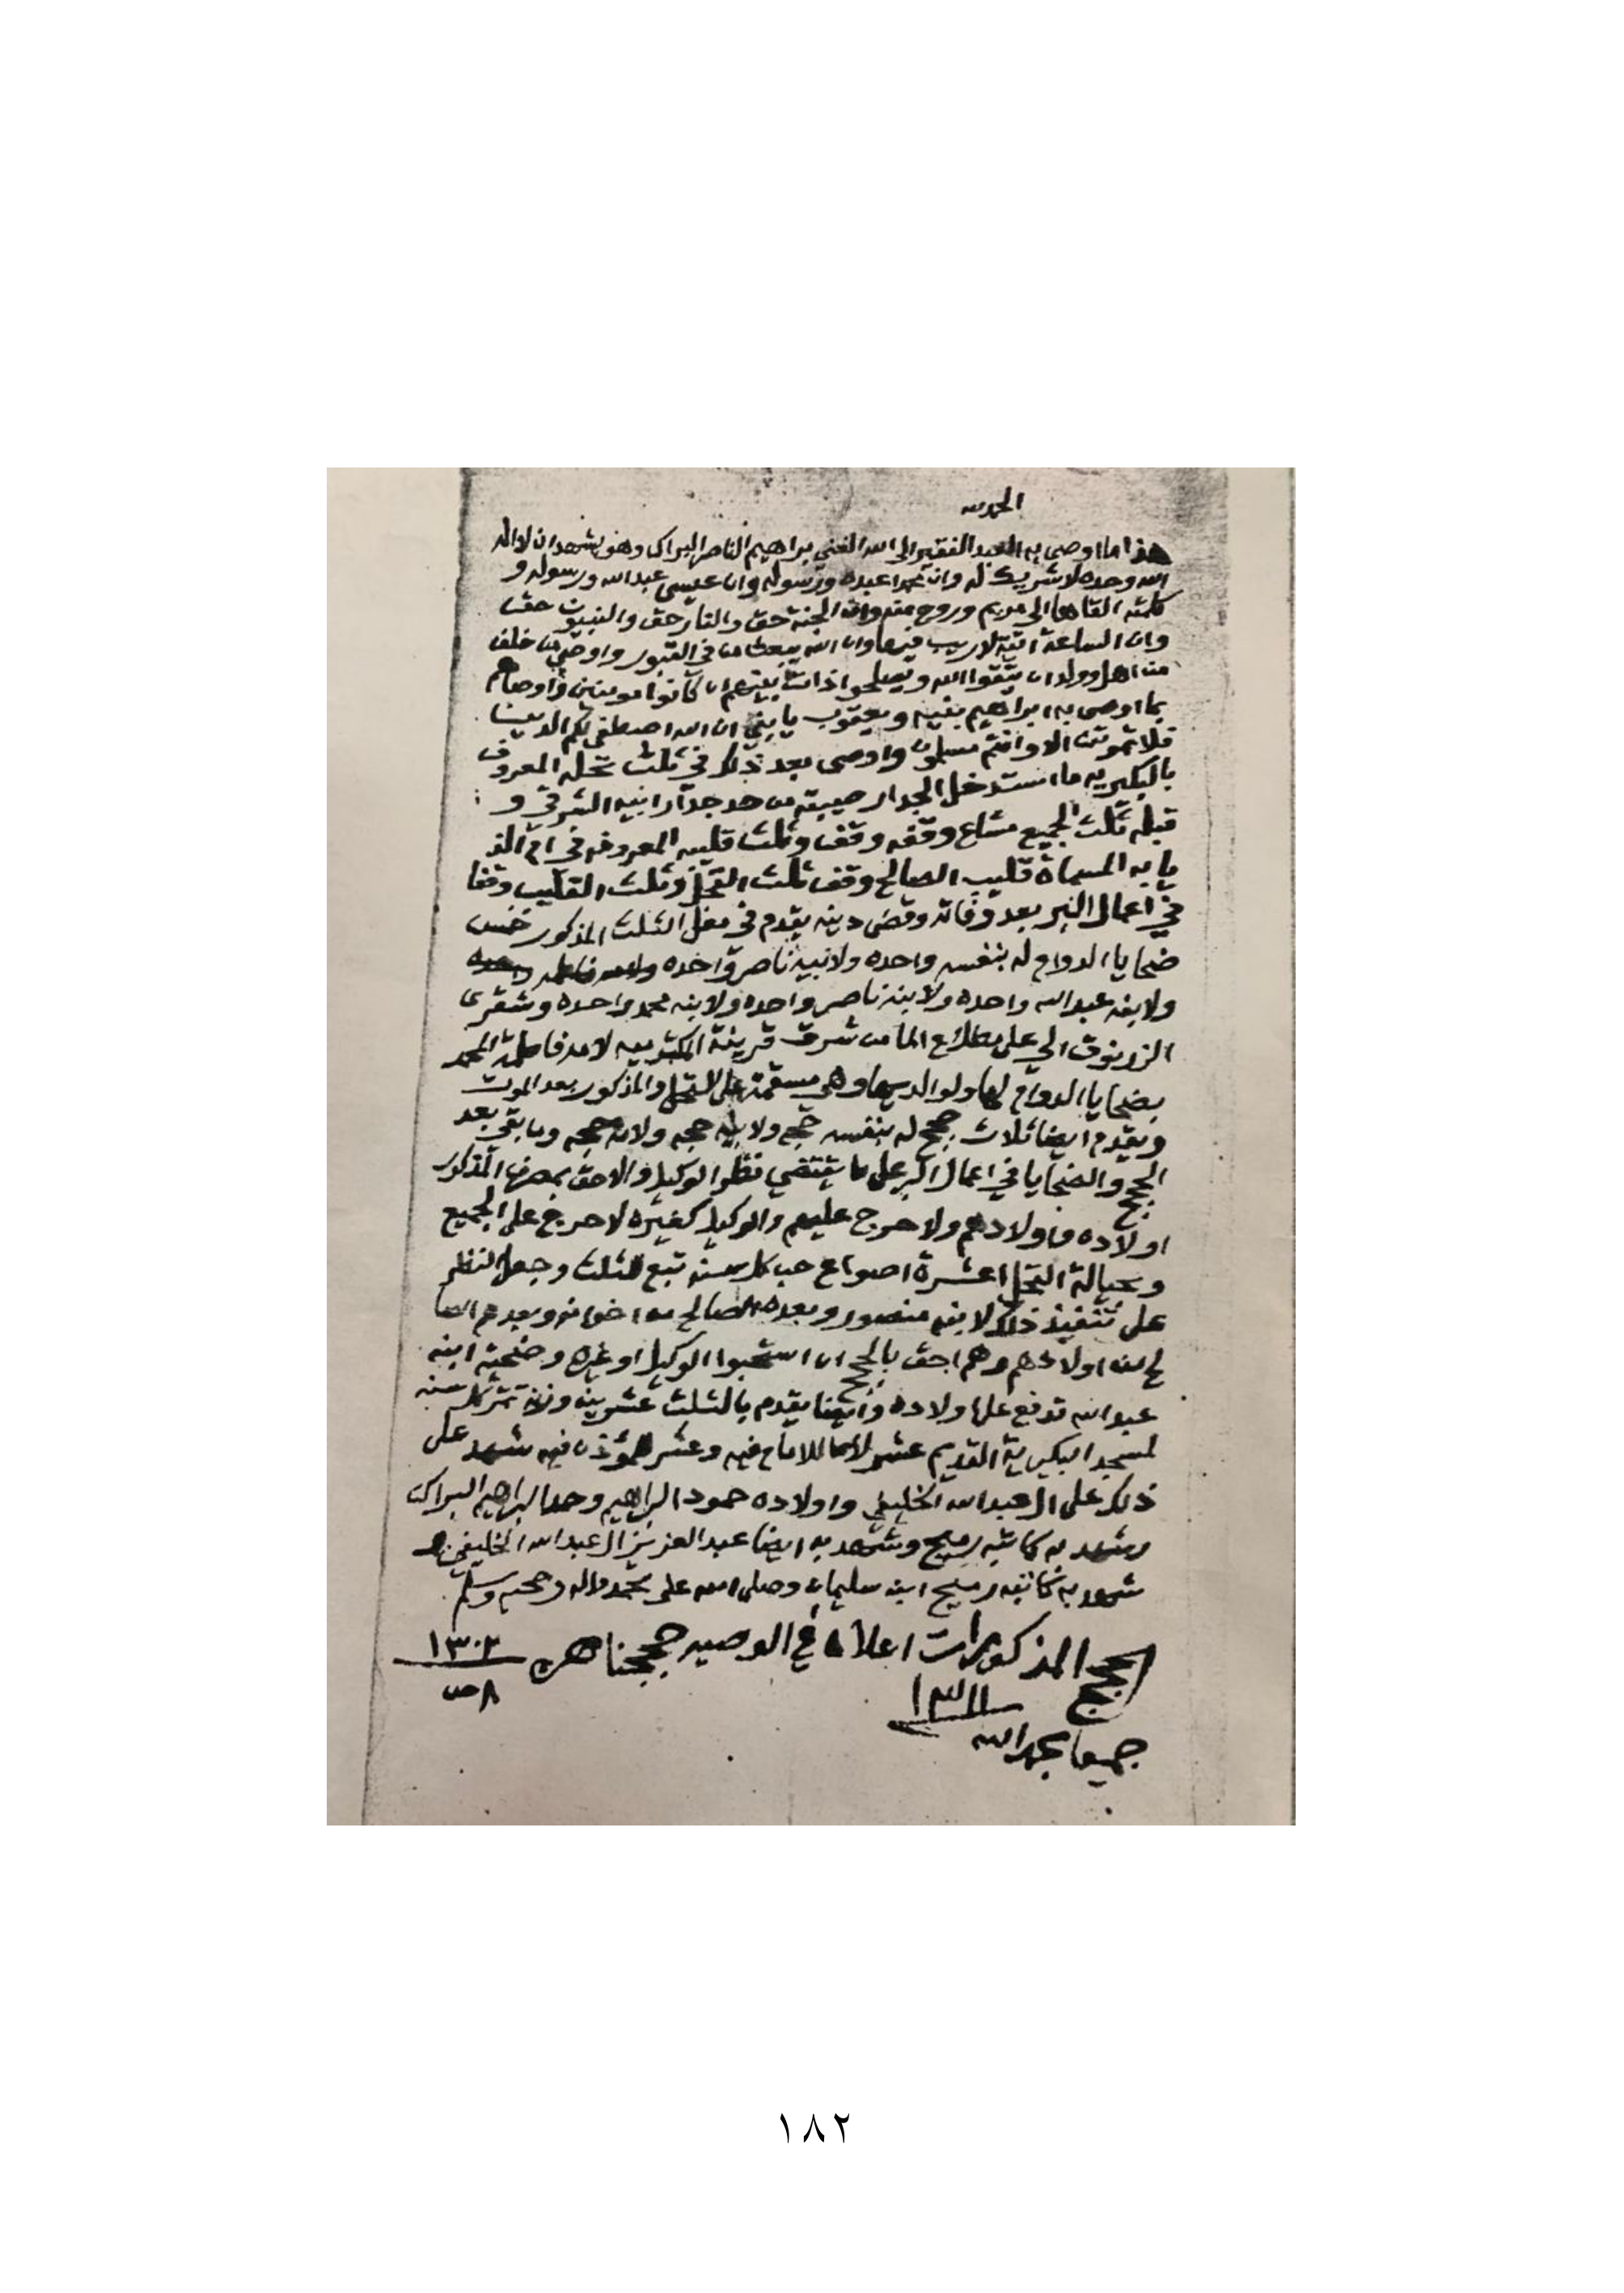 الحمد لله
هذا ما اوصى به العبد الفقير الى الله الغني براهيم الناصر البراك وهو يشهد ان لا اله
الله وحده لا شريك له وان محمدا عبده ورسوله وان عيسى عبد الله ورسوله و
كلمته القاها الى مريم وروح منه وان الجنة حق والنار حق والنبيون حق
وان الساعة اتية لا ريب فيها وان الله يبعث من في القبور واوصى من خلف
من اهل وولد ان يتقوا الله ويصلحوا ذات بينهم ان كانوا مومنين واوصاهم
بما اوصى به ابراهيم بنيه ويعقوب يا بني ان الله اصطفى لكم الدين
فلا تموتن الا وانتم مسلمون واوصى بعد ذلك في ثلث نخله المعروف
بالبكيريه ما استدخل الجدار من حد جدار ابيه الشرقي و
قبله ثلث الجميع مشاع وقفه وقف وثلث قليبه المعروفه في ام الذ
يابه المسماة قليب الصالح وقف ثلث النخل وثلث القليب وقفا
في اعمال البر بعد وفاته وقضى دينه يقدم في مغل الثلث المذكور خمس
ضحايا الدوام له بنفسه واحده ولابيه ناصر واحده
ولابنه عبد الله واحده ولابنه ناصر واحده ولابنه محمد واحده وشقرى
الزرنوق الي على مطلاع الما من شرق لامه فاطمة المحمد
بضحايا الدوام لها ولوالديها وهي على النخل والمذكور بعد الموت
ويقدم ايضا ثلاث حجج له بنفسه حجه ولابيه حجه ولامه حجه وما بقي بعد
الحجج والضحايا في اعمال البر على ما يقتضي نظر الوكيل والاحق بمصرفها المذكور
اولاده واولادهم ولا حرج عليهم والوكيل كغيره لا حرج على الجميع
وحيالة النخل اعشرة اصواع حب كل سنه تبع للثلث وجعل النظر
على تنفيذ ذلك لابنه منصور وبعده الصالح من اخوانه وبعدهم الصا
لح من اولادهم وهم احق بالحجج ان استحبوا الوكيل او غيره وضحية ابنه
عبد الله تدفع على اولاده وايضا يقدم بالثلث عشرين وزنة تمر كل سنه
لمسجد البكيرية القديم عشر للامام فيه وعشر للموذن فيه شهد على
ذلك على ال عبد الله الخليفي واولاده حمود البراهيم وحمد البراهيم البراك
وشهد به كاتبه رميح وشهد به ايضا عبد العزيز ال عبد الله الخليفي
شهد به كاتبه رميح ابن سليمان وصلى الله على محمد واله وصحبه وسلم
١٣٠٣
٨ ص
الحجج المذكورات اعلاه في الوصيه حججناهن
١٣١١
جميعا بحمد الله
١٨٢